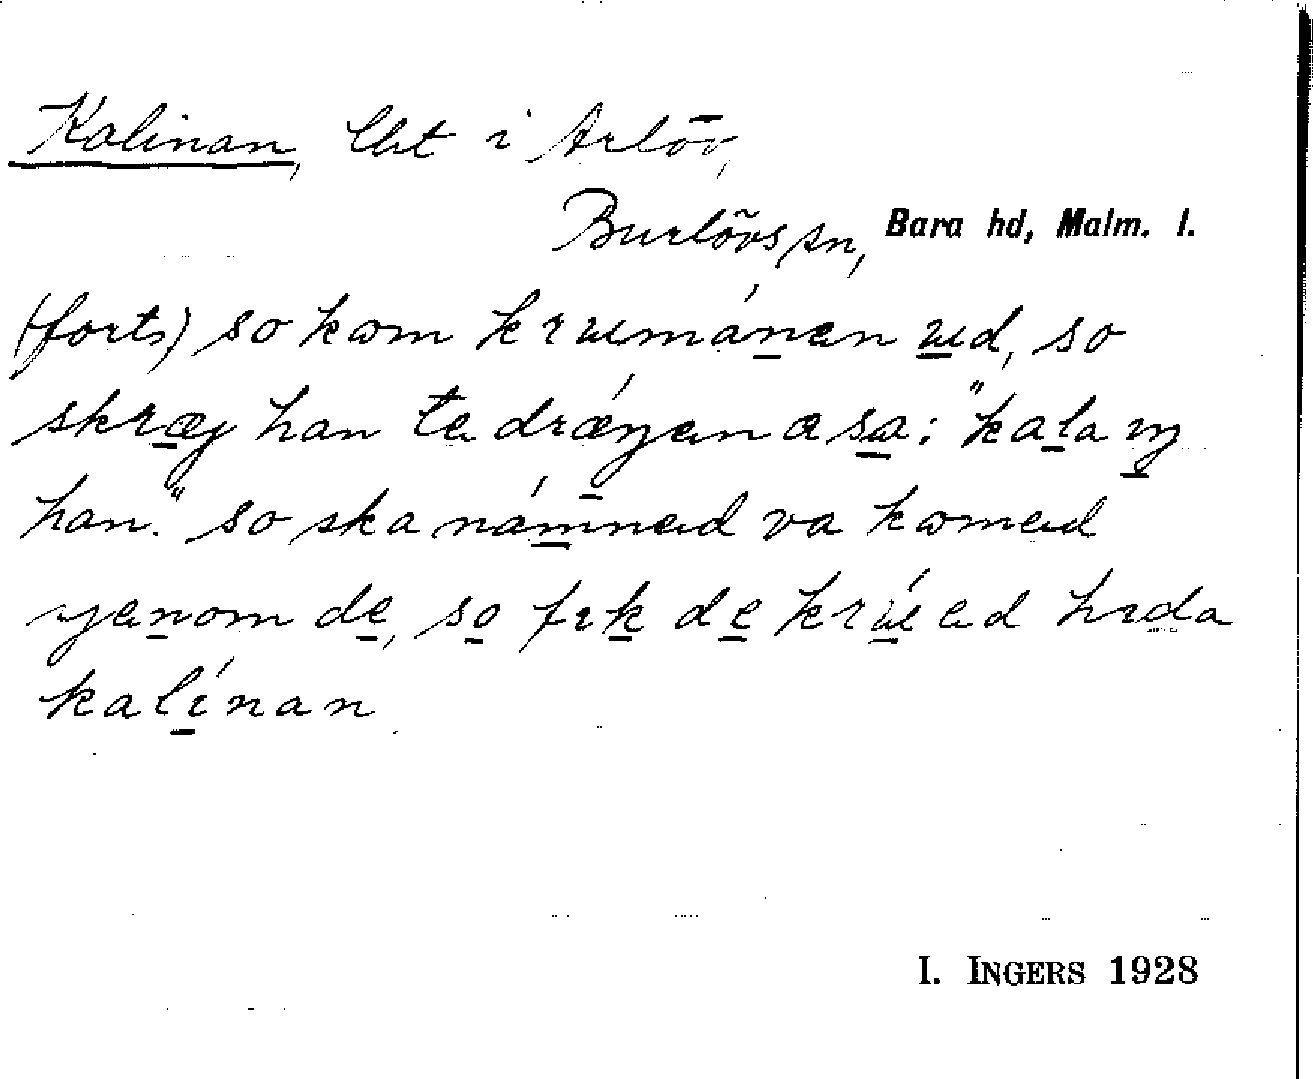 Kalinan, lht i Arlöv,
Burlövs sn, Bara hd, Malm. l.
(forts) so kom krumánen ud, so
skræj han te drǽŋen a sa: "kala ŋ
han." so ska námned va komed
jenom de, so fik de krúed hida
kalínan
I. INGERS 1928